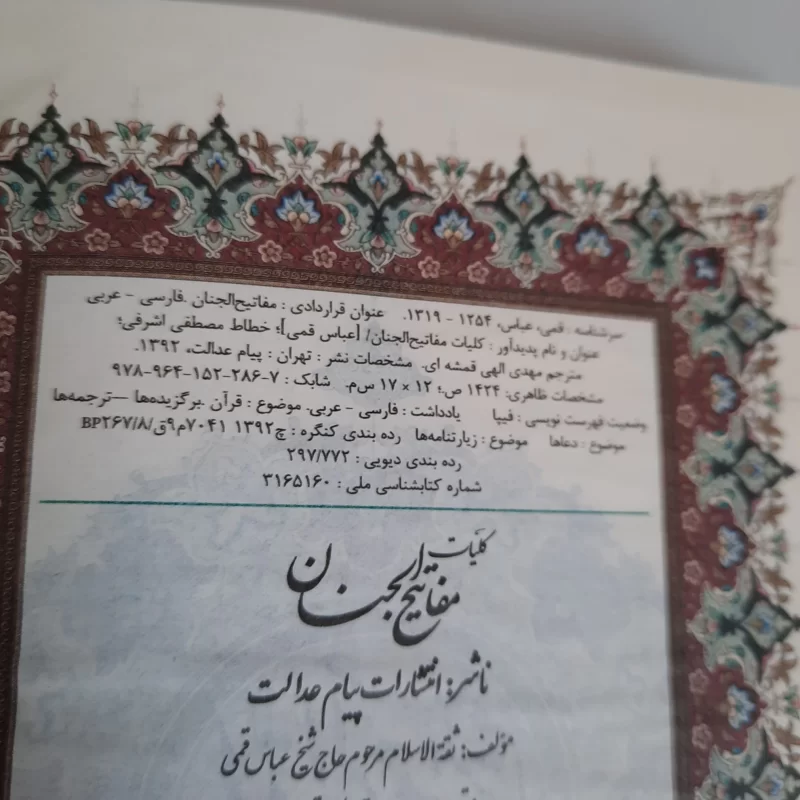 سرشناسه : قمی، عباس، ۱۲۵۴ - ۱۳۱۹. عنوان قراردادی : مفاتیح‌الجنان .فارسی - عربی
عنوان و نام پدیدآور : کلیات مفاتیح‌الجنان/ [عباس قمی]؛ خطاط مصطفی اشرفی؛
مترجم مهدی الهی قمشه ای. مشخصات نشر : تهران : پیام عدالت، ۱۳۹۲.
مشخصات ظاهری: ۱۴۲۴ ص؛ ۱۲ × ۱۷ س‌م. شابک : ۷-۲۸۶-۱۵۲-۹۶۴-۹۷۸
وضعیت فهرست نویسی : فیپا یادداشت : فارسی - عربی. موضوع : قرآن .برگزیده‌ها —ترجمه‌ها
موضوع : دعاها موضوع : زیارتنامه‌ها رده بندی کنگره : چ۱۳۹۲ ۷۰۴۱م۹ق/BP۲۶۷/۸
رده بندی دیویی : ۲۹۷/۷۷۲
شماره کتابشناسی ملی : ۳۱۶۵۱۶۰
کلیات
مفاتیح الجنان
ناشر: انتشارات پیام عدالت
مؤلف: ثقة الاسلام مرحوم حاج شیخ عباس قمی